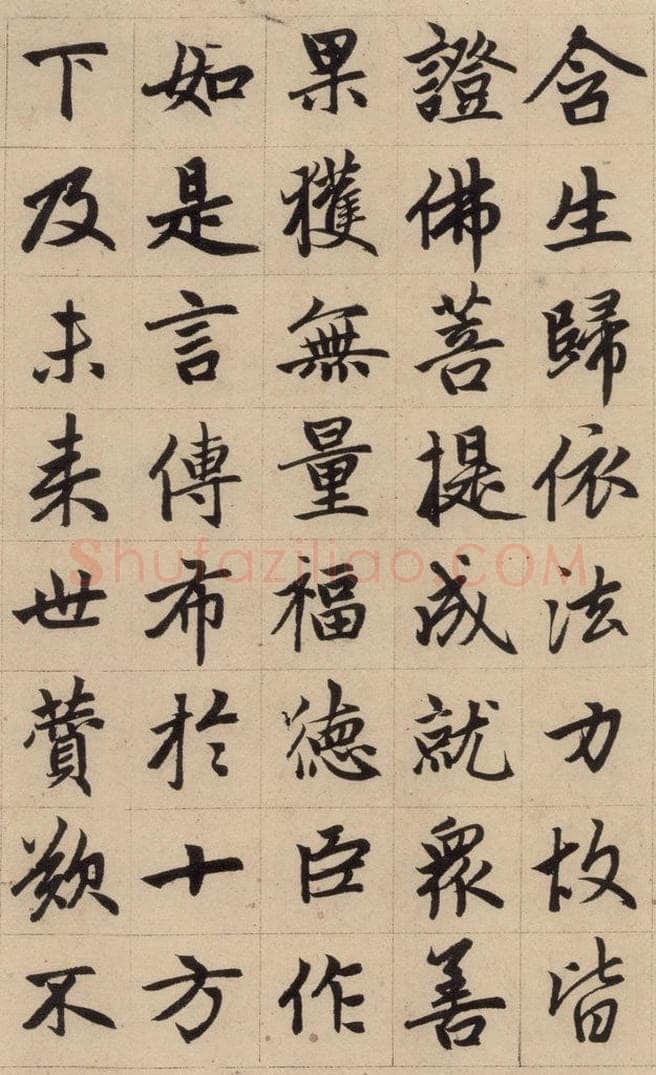 含生歸依法力故皆
證佛菩提成就衆善
果獲無量福德臣作
如是言傳布於十方
下及未来世讚歎不
Shufaziliao.COM